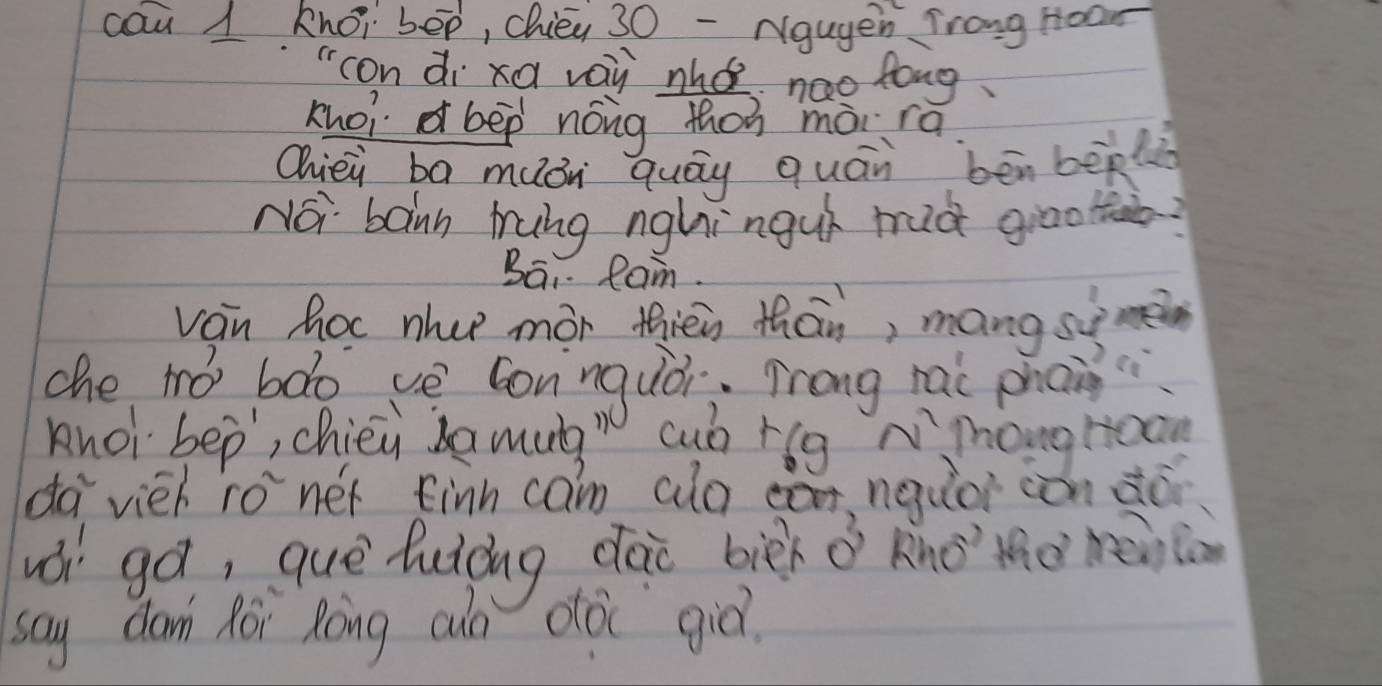 câu 1 Khói bếp, chiều 30 - Nguyễn Trọng Hoàn
"con đi xa vậy nhớ nao lòng
Khói bếp nồng thơm mái rạ
Chiều ba mươi quây quần bên bếp lửa
Nồi bánh trưng nghi ngút phút giao thừa?
Bài làm.
Văn học như một thiên thần, mang sứ mệnh
che trở bảo vệ con người. Trong tác phẩm "
Khói bếp, chiều ba mươi" của t/g N Trọng Hoàn
đã viết rõ nét tình cảm của người con đối
với gđ, quê hương đặc biệt ở khổ thơ trên làm
say đắm lõi lòng của độc giả.